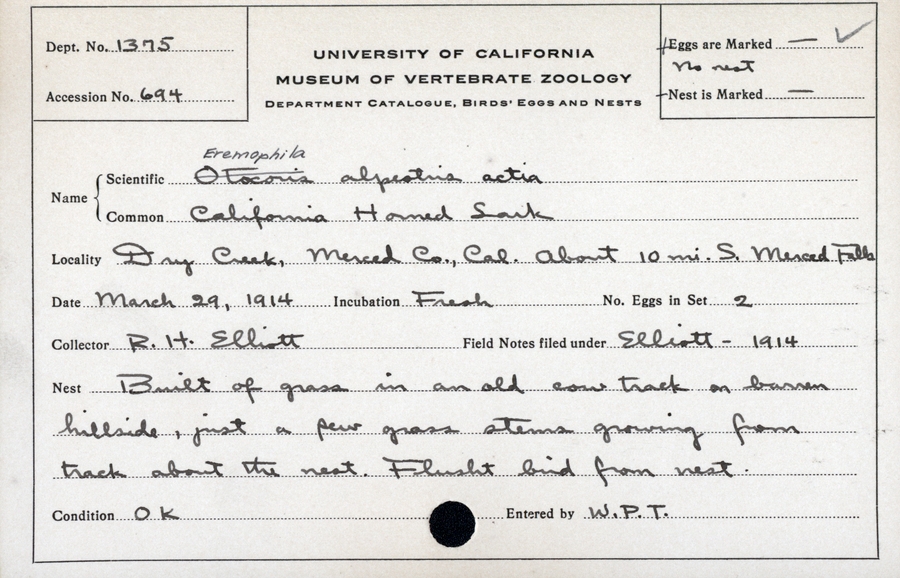 Dept. No. 1375
Accession No. 694
UNIVERSITY OF CALIFORNIA
MUSEUM OF VERTEBRATE ZOOLOGY
DEPARTMENT CATALOGUE, BIRDS' EGGS AND NESTS
Eggs are Marked — ✓
No nest
Nest is Marked —
Eremophila
Name
Scientific Otocoris alpestris actia
Common California Horned Lark
Locality Dry Creek, Merced Co., Cal. About 10 mi. S. Merced Falls
Date March 29, 1914 Incubation Fresh No. Eggs in Set 2
Collector R. H. Elliott Field Notes filed under Elliott - 1914
Nest Built of grass in an old cow track on barren
hillside, just a few grass stems growing from
track about the nest. Flusht bird from nest.
Condition OK Entered by W.P.T.